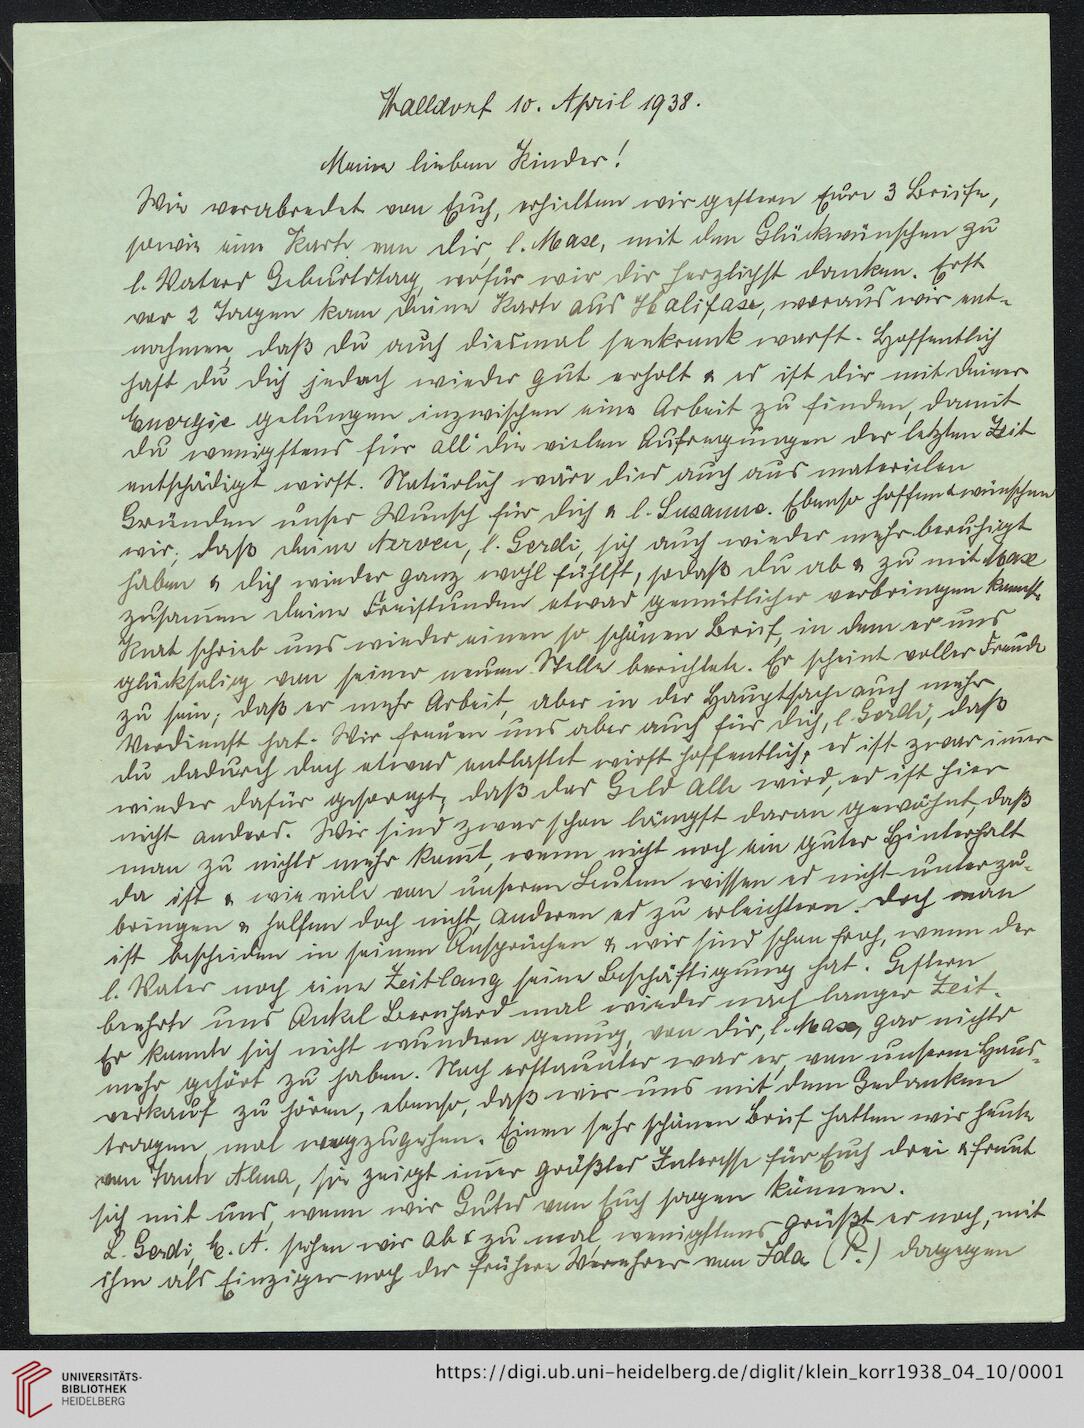 Walldorf 10. April 1938.
Meine lieben Kinder!
Wie verabredet von Euch, erhielten wir gestern Eure 3 Briefe,
sowie eine Karte von Dir, l. Maxe, mit den Glückwünschen zu
l. Vaters Geburtstag, wofür wir Dir herzlichst danken. Erst
vor 2 Tagen kam Deine Karte aus Halifaxe, woraus wir ent-
nahmen, daß Du auch diesmal seekrank warst. Hoffentlich
hast Du Dich jedoch wieder gut erholt & es ist Dir mit Deiner
Energie gelungen inzwischen eine Arbeit zu finden, damit
Du wenigstens für all' die vielen Aufregungen der letzten Zeit
entschädigt wirst. Natürlich wäre dies auch aus materielen
Gründen unser Wunsch für Dich & l. Susanne. Ebenso hoffen & wünschen
wir, daß Deine Nerven, l. Gerdi, sich auch wieder mehr beruhigt
haben & Dich wieder ganz wohl fühlst, sodaß Du ab & zu mit Maxe
zusammen Deine Freistunden etwas gemütlicher verbringen kannst.
Kurt schrieb uns wieder einen so schönen Brief, in dem er uns
glückselig von seiner neuen Stelle berichtete. Er scheint voller Freude
zu sein, daß er mehr Arbeit, aber in der Hauptsache auch mehr
Verdienst hat. Wir freuen uns aber auch für Dich, l. Gerdi, daß
Du dadurch doch etwas entlastet wirst hoffentlich, es ist zwar immer
wieder dafür gesorgt, daß das Geld alle wird, es ist hier
nicht anders. Wir sind zwar schon längst daran gewöhnt, daß
man zu nichts mehr kommt, wenn nicht noch ein guter Hinterhalt
da ist & wie viele von unseren Leuten wissen es nicht unterzu-
bringen & helfen doch nicht, anderen es zu erleichtern. Doch man
ist bescheiden in seinen Ansprüchen & wir sind schon froh, wenn der
l. Vater noch eine Zeitlang seine Beschäftigung hat. Gestern
beehrte uns Onkel Bernhard mal wieder nach langer Zeit.
Er konnte sich nicht wundern genug, von Dir, l. Maxe, gar nichts
mehr gehört zu haben. Noch erstaunter war er, von unserem Haus-
verkauf zu hören, ebenso, daß wir uns mit dem Gedanken
tragen, mal wegzugehen. Einen sehr schönen Brief hatten wir heute
von Tante Alma, sie zeigt immer größtes Interesse für Euch drei & freut
sich mit uns, wenn wir Gutes von Euch sagen können.
L. Gerdi, E. A. sehen wir ab & zu mal, wenigstens grüßt er noch, mit
ihm als Einziger noch der frühere Verehrer von Ida (P.) dagegen
UNIVERSITÄTS-
BIBLIOTHEK
HEIDELBERG
https://digi.ub.uni-heidelberg.de/diglit/klein_korr1938_04_10/0001